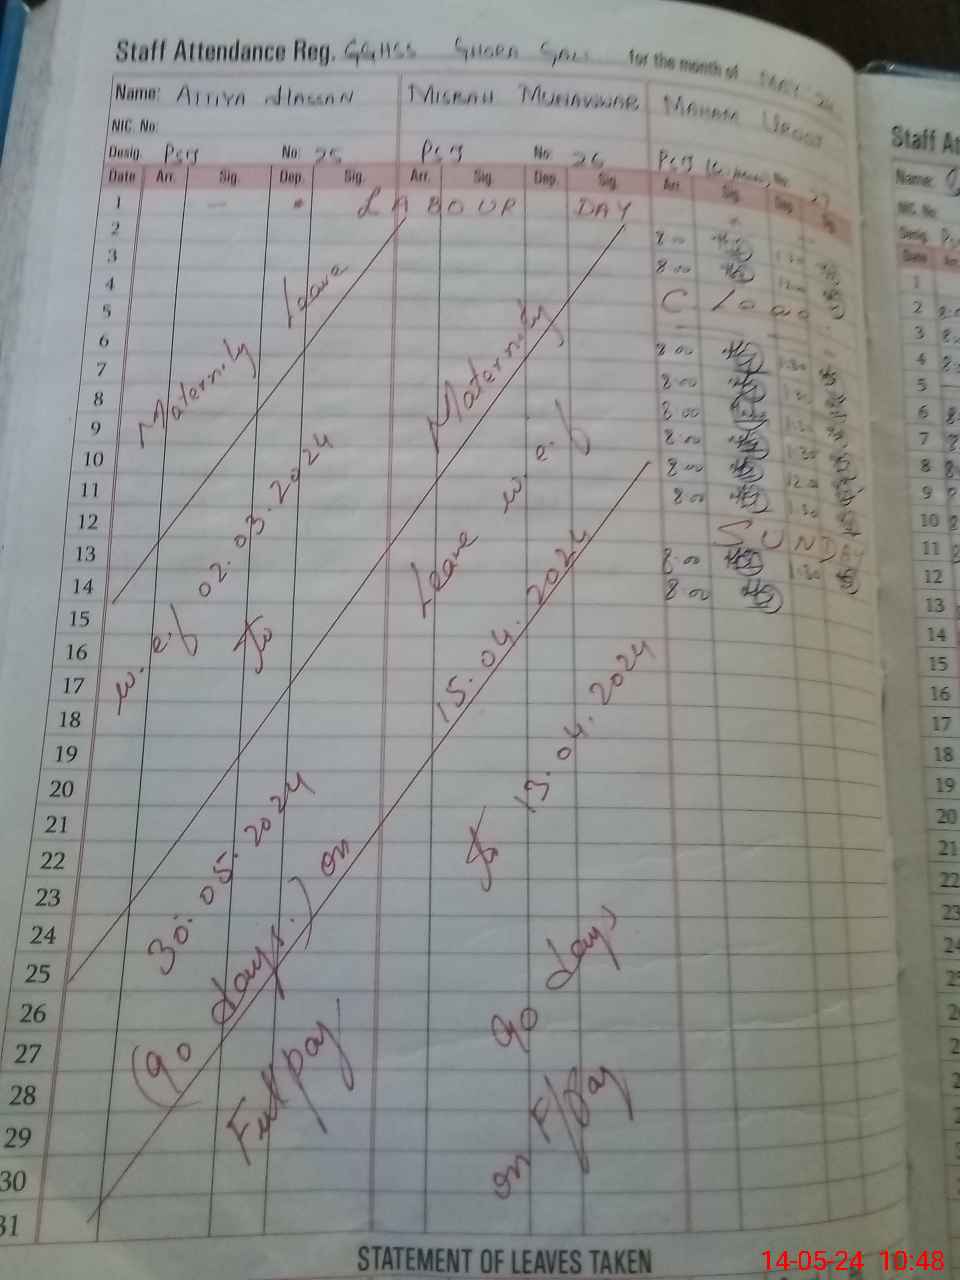 Staff Attendance Reg. GGHSS GHORA GALI for the month of MAY 24
Name: ATTIYA HASSAN MISBAH MUNAWWAR MAHAM
NIC. No:
Desig. PST No: 25 PST No: 26 PST No: 27
Date Arr. Sig. Dep. Sig. Arr. Sig. Dep. Sig. Arr. Sig. Dep. Sig.
1 LABOUR DAY
2 8:00 1:30
3 8:00 12:00
4 Closed
5
6 8:00 1:30
7 8:00 1:30
8 8:00 1:30
9 8:00 1:30
10 8:00 12:00
11 8:00 1:30
12 SUNDAY
13 8:00 1:30
14 8:00
15
16
17
18
19
20
21
22
23
24
25
26
27
28
29
30
31
Maternity Leave
w.e.f 02.03.2024
to
30.05.2024
(90 days) on
Full pay
Maternity
Leave w.e.f
15.04.2024
to 13.04.2024
90 days
on F/Pay
STATEMENT OF LEAVES TAKEN
Staff At
Name:
NIC. No
Desig.
Date Arr
1
2
3
4
5
6
7
8
9
10
11
12
13
14
15
16
17
18
19
20
21
22
23
14-05-24 10:48